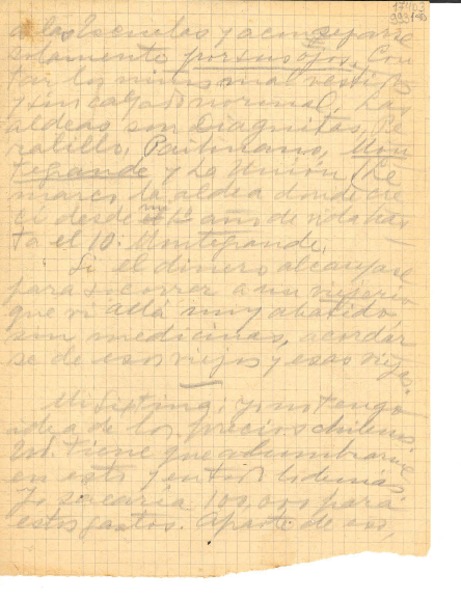 a las Escuelas y aconsejarse
solamente por sus ojos. Con-
tar los niños mal vestidos
y sin calzado normal. Las
aldeas son Diaguitas, Pe-
ralillo, Paihuano, Mon-
tegrande y La Unión. (Le
marco la aldea donde cre-
cí desde mi 1er año de vida has-
ta el 10: Montegrande.
Si el dinero alcanzase
para socorrer a un viejerío
que vi allá muy abatido,
sin medicinas, acordar-
se de esos viejos y esas viejas.
yo no tengo
idea de los precios chilenos.
Ud. tiene que alumbrarme
en esto y en todo lo demás
Yo sacaría 100,000 para
estos gastos. Aparte de eso,